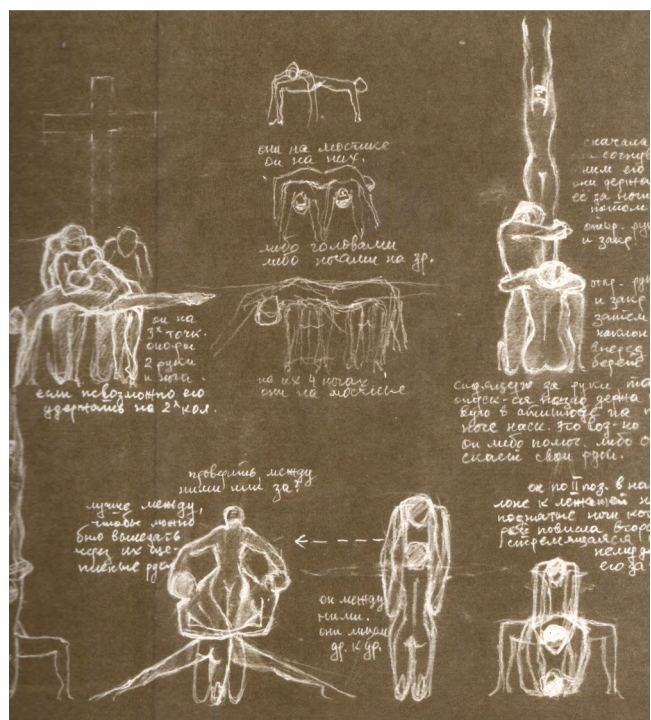 они на мостике
он на них.
либо головами
либо ногами на зр.
он на
3х точк.
опоры
2 руки
и нога.
если невозможно его
удержать на 2х кол.
на их 4 ногах
они на мостике
сначала
согнув
ним его
они держа
её за ноги
потом
откр. рук
и закр.
откр. ру
и закр
затем
наклон
вперед
берете
сидящего за руки,
держа
в аттитюде на
ноге наск. это воз-но
он либо помог. либо
скает свои руки.
проверить между
ними или за?
лучше между,
чтобы можно
было вылезать
через их
руки
он между
ними.
они лицом
др. к др.
он по II поз. в на
лоне к лежащей
поднятые ноги кот
повисла второ
стремящаяся
его за